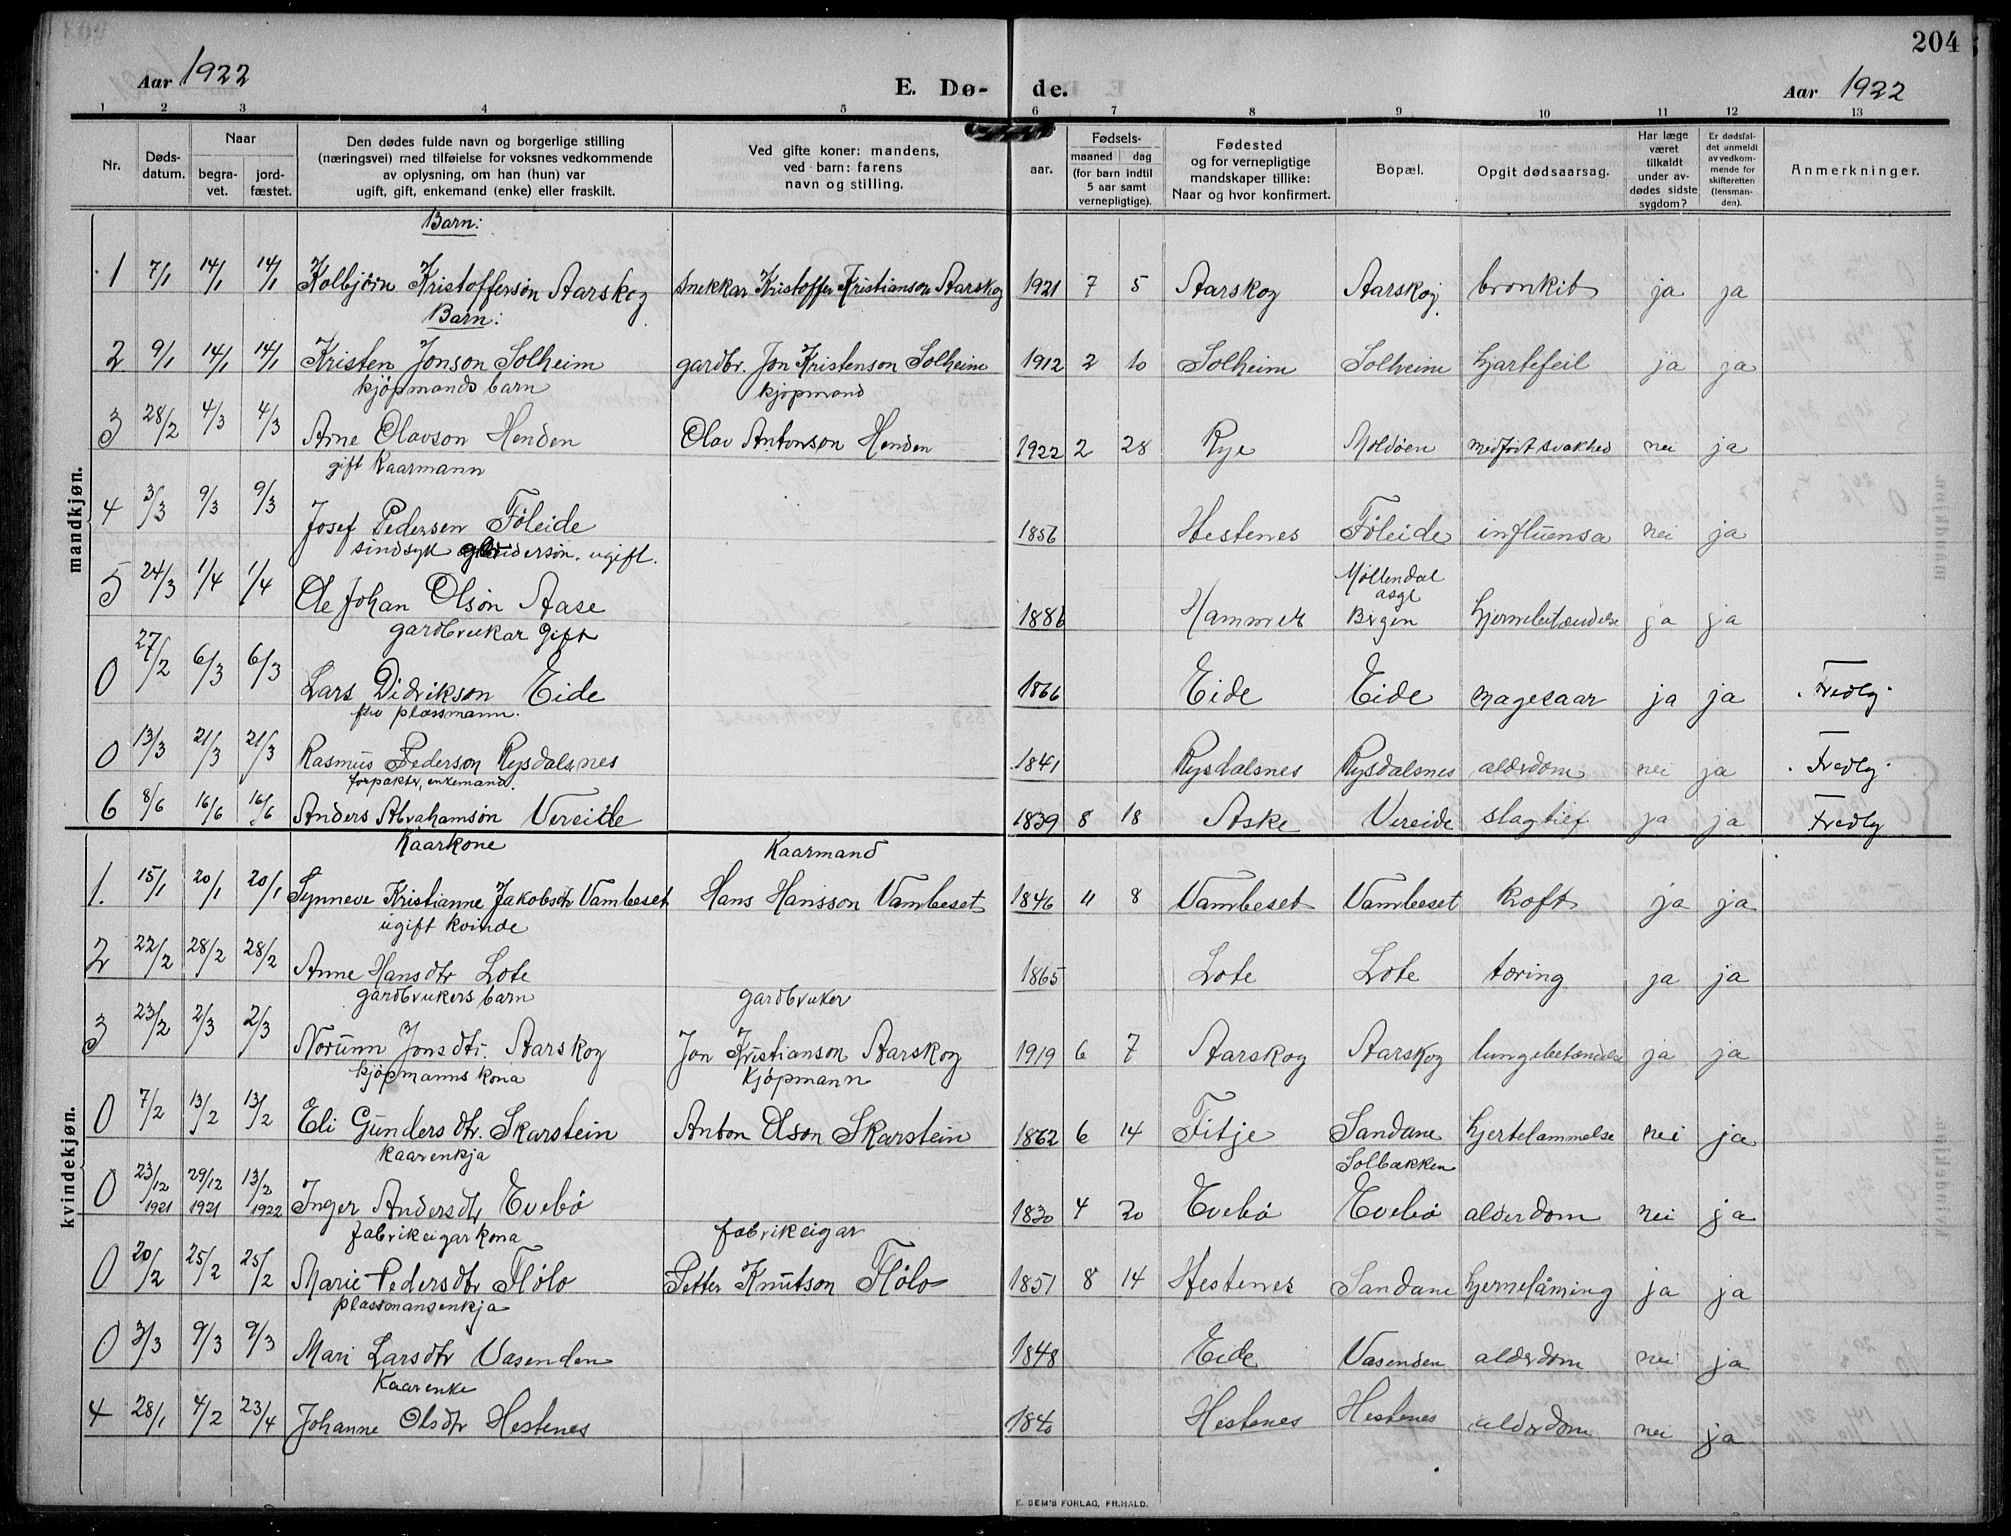 204
Aar 1922 E. Dø- de. Aar 1922
1 2 3 4 5 6 7 8 9 10 11 12 13
Nr. Døds-datum. Naar begra-vet. jord-fæstet. Den dødes fulde navn og borgerlige stilling (næringsvei) med tilføielse for voksnes vedkommende av oplysning, om han (hun) var ugift, gift, enkemand (enke) eller fraskilt. Ved gifte koner: mandens, ved barn: farens navn og stilling. aar. Fødsels- maaned dag (for barn indtil 5 aar samt vernepligtige). Fødested og for vernepligtige mandskaper tillike: Naar og hvor konfirmert. Bopæl. Opgit dødsaarsag. Har læge været tilkaldt under av-dødes sidste sygdom? Er dødsfal-det anmeldt av vedkom-mende for skifteretten (lensman-den). Anmerkninger.
mandkjøn.
Barn:
1 7/1 14/1 14/1 Kolbjørn Kristofferson Aarskog snekkar Kristoffer Kristianson Aarskog 1921 7 5 Aarskog Aarskog bronkit ja ja
Barn:
2 9/1 14/1 14/1 Kristen Jonson Solheim gardbr. Jon Kristenson Solheim 1912 2 10 Solheim Solheim hjartefeil ja ja
kjøpmands barn kjøpmand
3 28/2 4/3 4/3 Arne Olavson Henden Olav Antonson Henden 1922 2 28 Rye Moldøen medfødt svakhed nei ja
gift Kaarmann
4 3/3 9/3 9/3 Josef Pedersen Føleide 1856 Hestenes Føleide influensa nei ja
sindsyk ugift.
5 24/3 1/4 1/4 Ole Johan Olson Aase 1886 Hammer Møllendal asyl Bergen hjernebetændelse ja ja
gardbrukar gift
0 27/2 6/3 6/3 Lars Didrikson Eide 1866 Eide Eide magesaar ja ja Fredlg.
fhv plassmann.
0 13/3 21/3 21/3 Rasmus Pederson Rysdalsnes 1841 Rysdalsnes Rysdalsnes alderdom nei ja Fredlg.
forpakter, enkemand.
6 8/6 16/6 16/6 Anders Abrahamson Vereide 1839 8 18 Aske Vereide slagtilf ja ja Fredlg
kvindekjøn.
Kaarkone Kaarmand
1. 15/1 20/1 20/1 Synneve Kristianne Jakobsdtr Vambeset Hans Hansson Vambeset 1846 11 8 Vambeset Vambeset kræft ja ja
ugift kvinde
2 22/2 28/2 28/2 Anne Hansdtr Lote 1865 Lote Lote tæring ja ja
gardbrukers barn gardbruker
3 23/2 2/3 2/3 Norunn Jonsdtr. Aarskog Jon Kristianson Aarskog 1919 6 7 Aarskog Aarskog lungebetændelse ja ja
kjøpmanns kona kjøpmann
0 7/2 13/2 13/2 Eli Gundersdtr. Skarstein Anton Olson Skarstein 1862 6 14 Fitje Sandane hjertelammelse nei ja
kaarenkja Solbakken
0 23/12 1921 29/12 1921 13/2 1922 Inger Andersdtr Evebø 1830 4 20 Evebø Evebø alderdom nei ja
fabrikeigarkona fabrikeigar
0 20/2 25/2 25/2 Marie Pedersdtr Flølo Petter Knutson Flølo 1851 8 14 Hestenes Sandane hjernelåming ja ja
plassmansenkja
0 3/3 9/3 9/3 Mari Larsdtr Vasenden 1848 Eide Vasenden alderdom nei ja
Kaarenke
4 28/1 4/2 23/4 Johanne Olsdtr Hestenes 1840 Hestenes Hestenes alderdom nei ja
E. SEM'S FORLAG, FR.HALD.